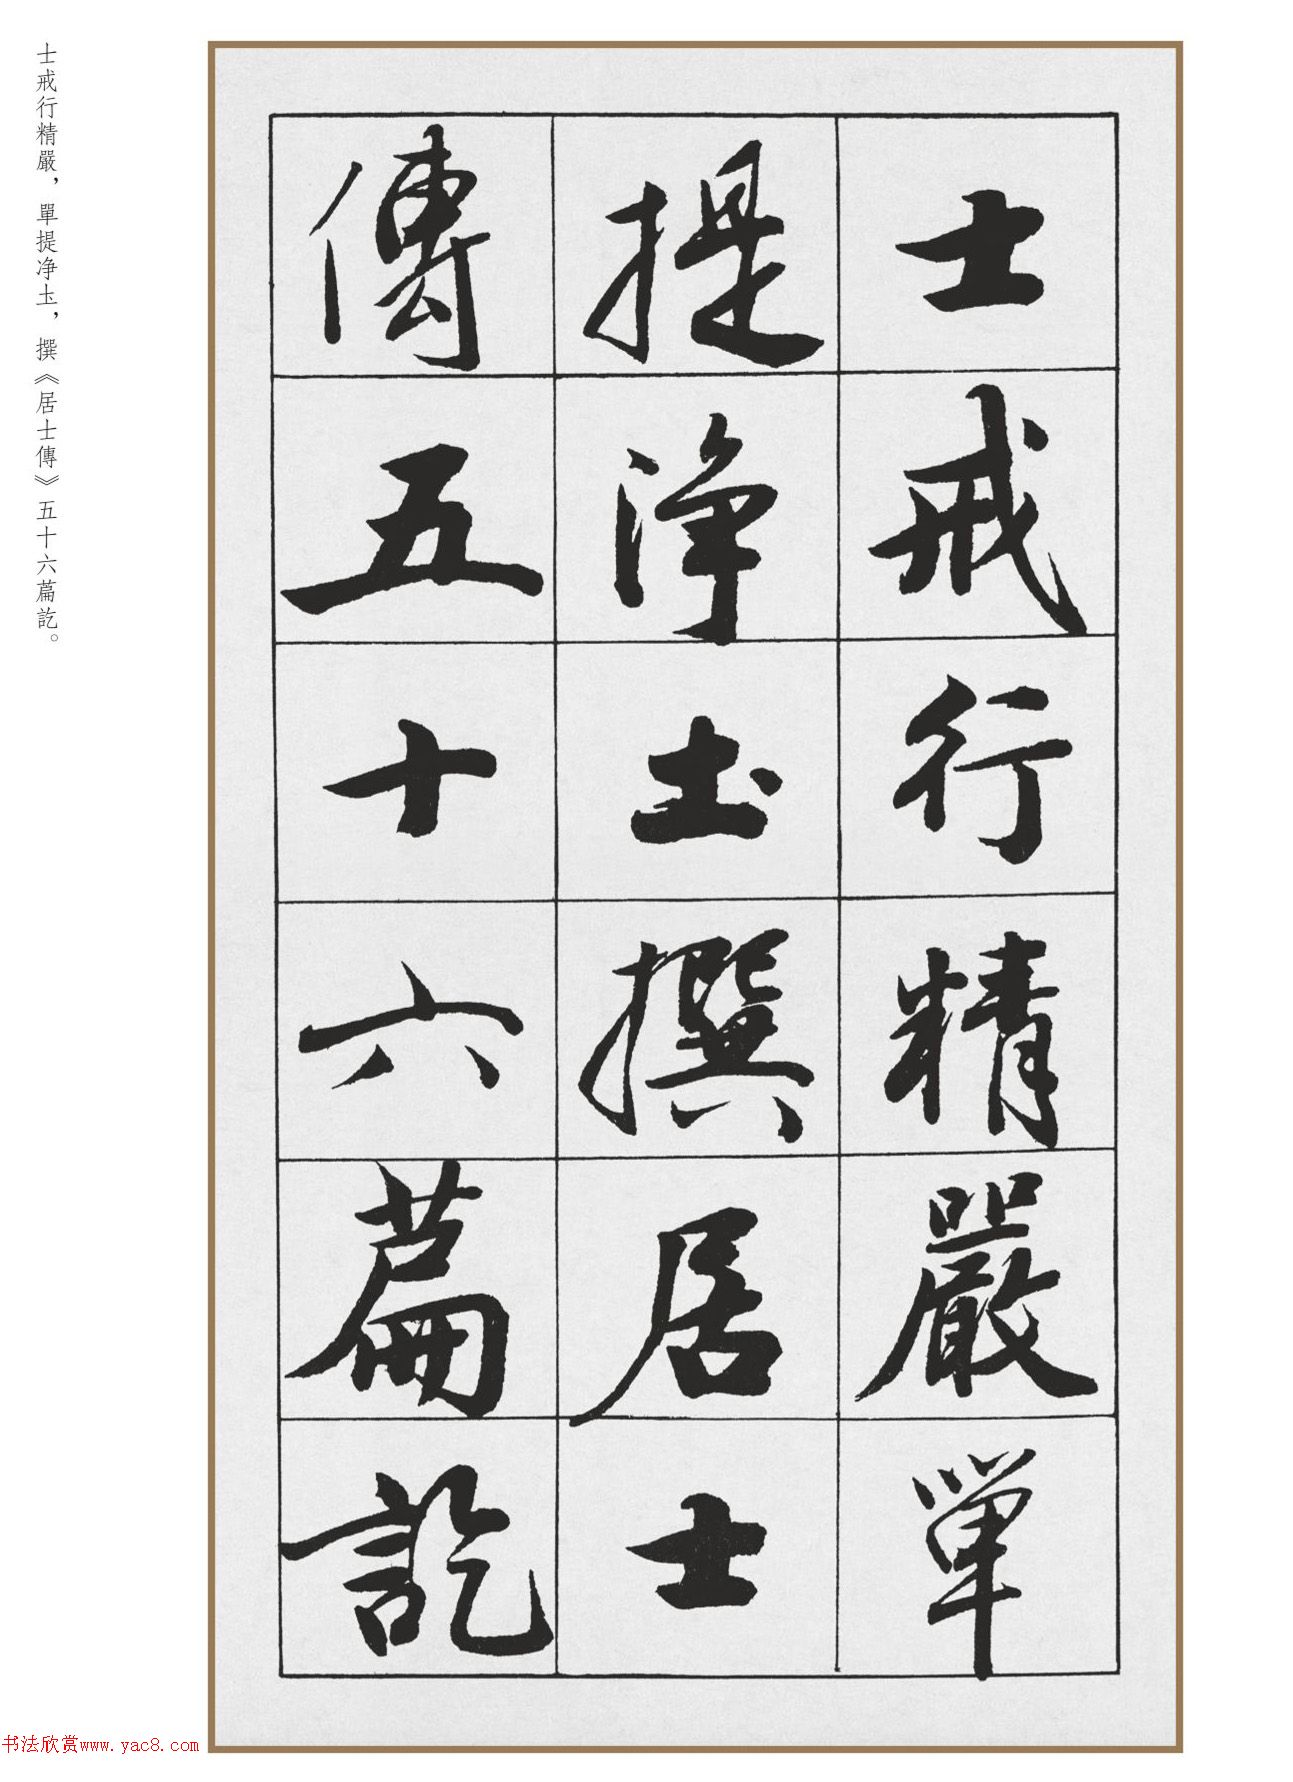 士戒行精嚴單
提淨土撰居士
傳五十六萹訖
士戒行精嚴，單提净圡，撰《居士傳》五十六萹訖。
书法欣赏www.yac8.com